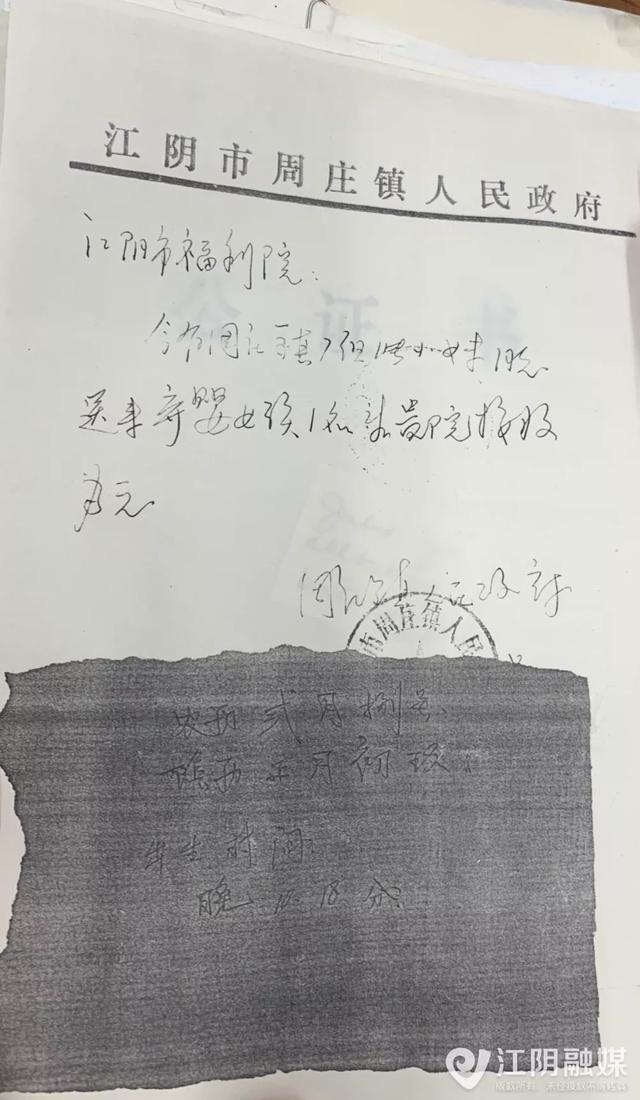 江阴市周庄镇人民政府
江阴市福利院：
今有周庄镇
送来弃婴女孩1名 贵院接收
为
周庄镇人民政府
市周庄镇人民
农历 式月捌号
正月初玖
出生时间
晚 10.18分
江阴融媒
版权所有，未经授权不得转载